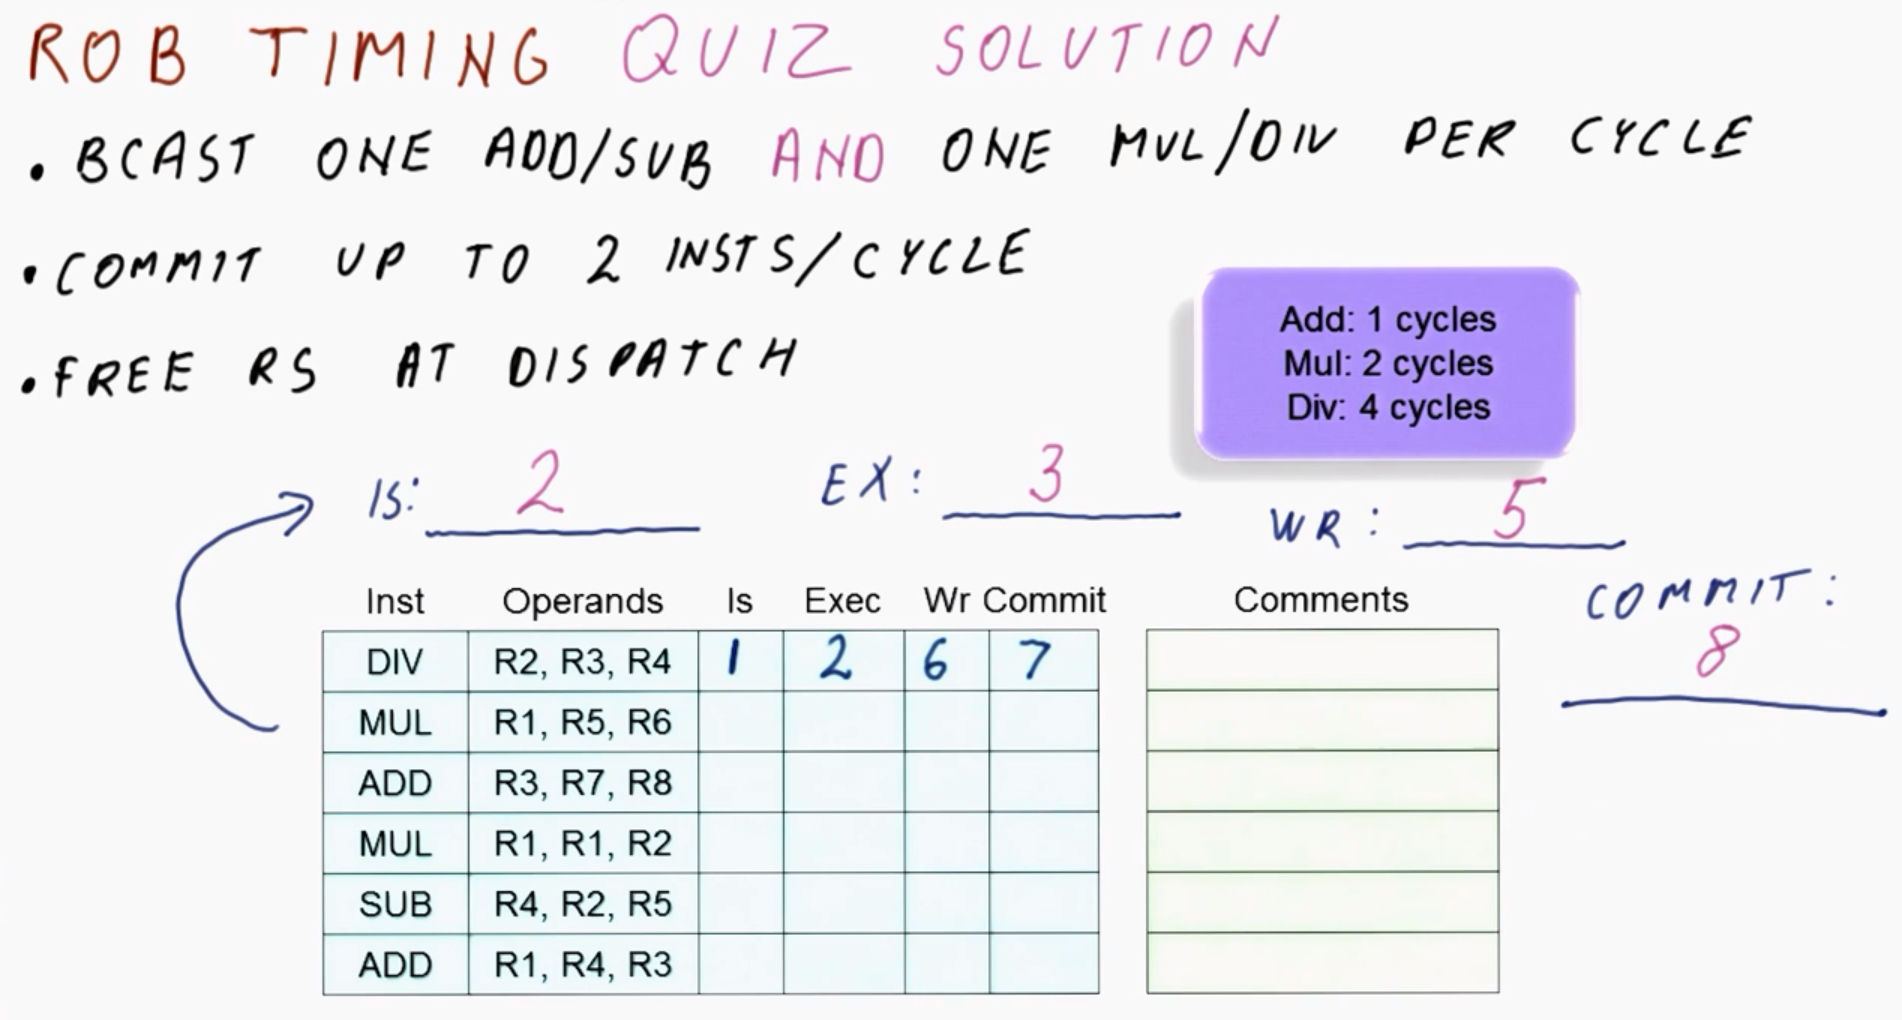 ROB TIMING QUIZ SOLUTION
• BCAST ONE ADD/SUB AND ONE MUL/DIV PER CYCLE
• COMMIT UP TO 2 INSTS/CYCLE
• FREE RS AT DISPATCH
Add: 1 cycles
Mul: 2 cycles
Div: 4 cycles
IS: 2 EX: 3 WR: 5
COMMIT: 8
Inst Operands Is Exec Wr Commit Comments
DIV R2, R3, R4 1 2 6 7
MUL R1, R5, R6
ADD R3, R7, R8
MUL R1, R1, R2
SUB R4, R2, R5
ADD R1, R4, R3